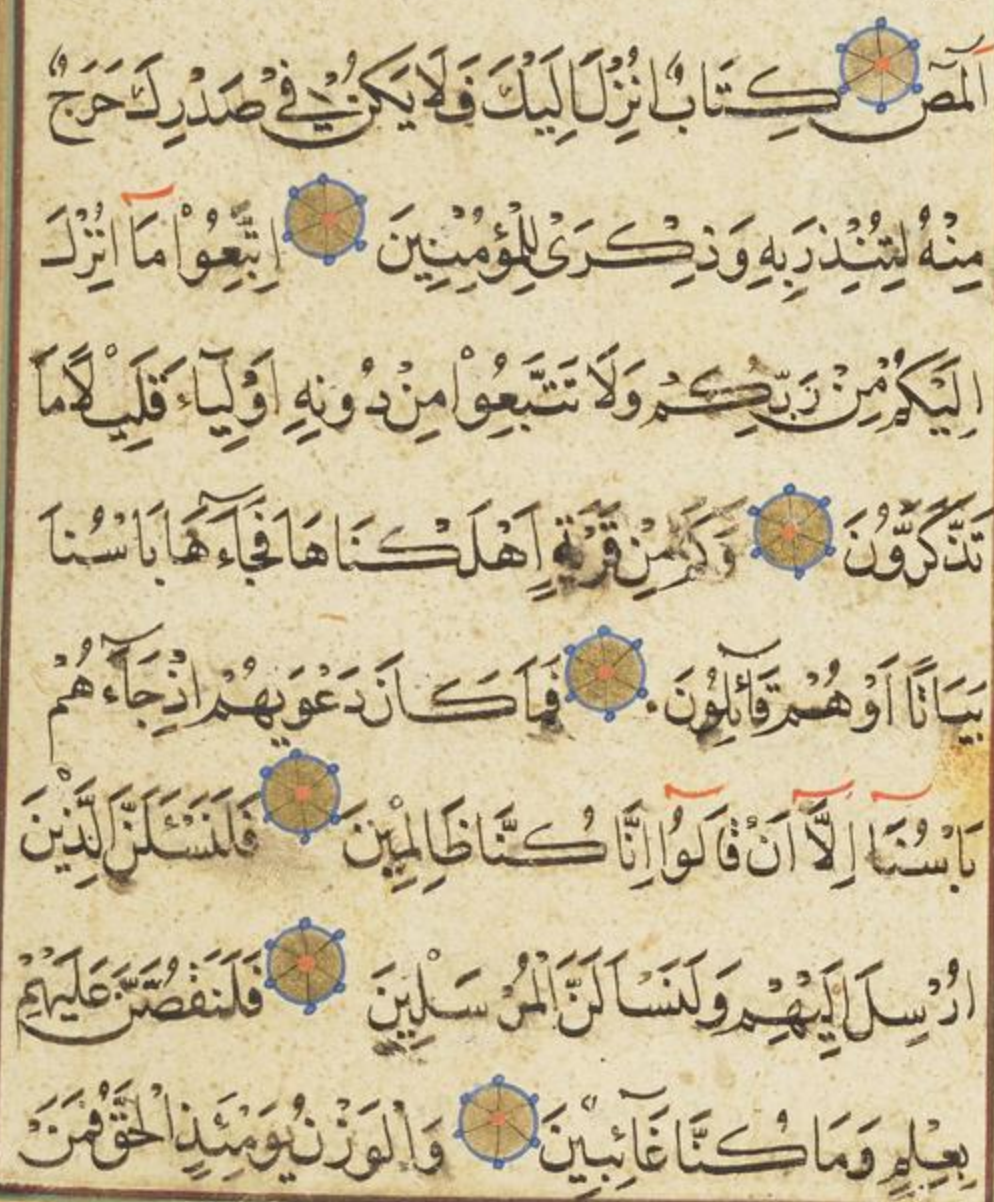 الٓمٓصٓ كِتَابٌ اُنْزِلَ اِلَيْكَ فَلَا يَكُنْ فِي صَدْرِكَ حَرَجٌ
مِنْهُ لِتُنْذِرَ بِهِ وَذِكْرَىٰ لِلْمُؤْمِنِينَ اِتَّبِعُوا مَآ اُنْزِلَ
اِلَيْكُمْ مِنْ رَبِّكُمْ وَلَا تَتَّبِعُوا مِنْ دُونِهِ اَوْلِيَآءَ قَلِيلًا مَا
تَذَكَّرُونَ وَكَمْ مِنْ قَرْيَةٍ اَهْلَكْنَاهَا فَجَآءَهَا بَاْسُنَا
بَيَاتًا اَوْ هُمْ قَآئِلُونَ فَمَا كَانَ دَعْوَيهُمْ اِذْ جَآءَهُمْ
بَاْسُنَآ اِلَّآ اَنْ قَالُوٓا اِنَّا كُنَّا ظَالِمِينَ فَلَنَسْئَلَنَّ الَّذِينَ
اُرْسِلَ اِلَيْهِمْ وَلَنَسْاَلَنَّ الْمُرْسَلِينَ فَلَنَقُصَّنَّ عَلَيْهِمْ
بِعِلْمٍ وَمَا كُنَّا غَآئِبِينَ وَالْوَزْنُ يَوْمَئِذٍ الْحَقُّ فَمَنْ